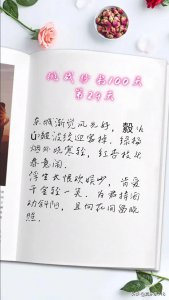 挑战抄书100天
第29天
东城渐觉风光好，縠
皱波纹迎客棹。绿杨
烟外晓寒轻，红杏枝头
春意闹。
浮生长恨欢娱少，肯爱
千金轻一笑。为君持酒
劝斜阳，且向花间留晚
照。